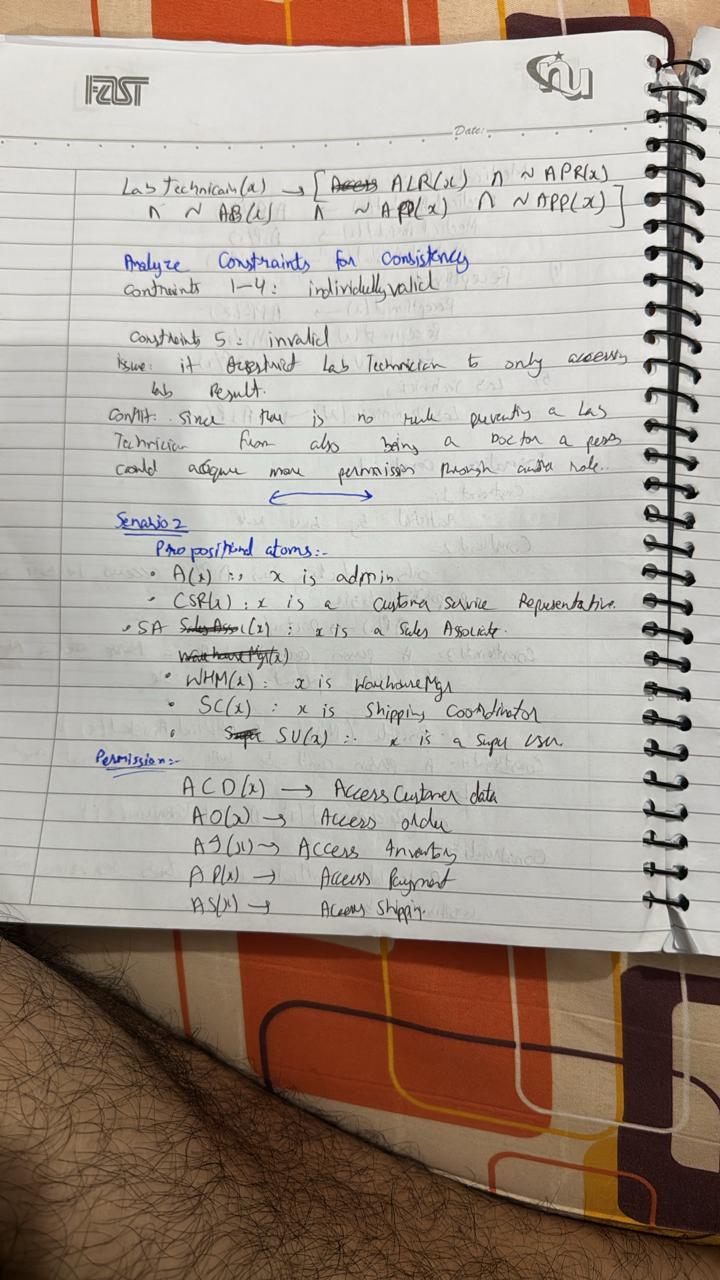 FAST
nu
Date:
Lab Technicain(x) → [ ALR(x) ∧ ~ APR(x)
∧ ~ AB(x) ∧ ~ APP(x) ∧ ~ APP(x) ]
Analyze Constraints for Consistency
Contraints 1-4: individully valid
Constraints 5: invalid
issue: it Lab Technician to only
lab Result.
Since is no rule a Lab
Technician from also being a Doctor a
could more permission through role..
Senario 2
Propositional atoms:-
• A(x) :, x is admin
• CSR(x) : x is a Customer Service Representative.
• SA (x) : x is a Sales Associate.
• WHM(x) : x is WarehouseMgr
• SC(x) : x is Shipping Coordinator
• SU(x) :. x is a Super User
Permission:-
ACD(x) → Access Customer data
AO(x) → Access order
AI(x) → Access Inventory
AP(x) → Access Payment
AS(x) → Access Shipping.